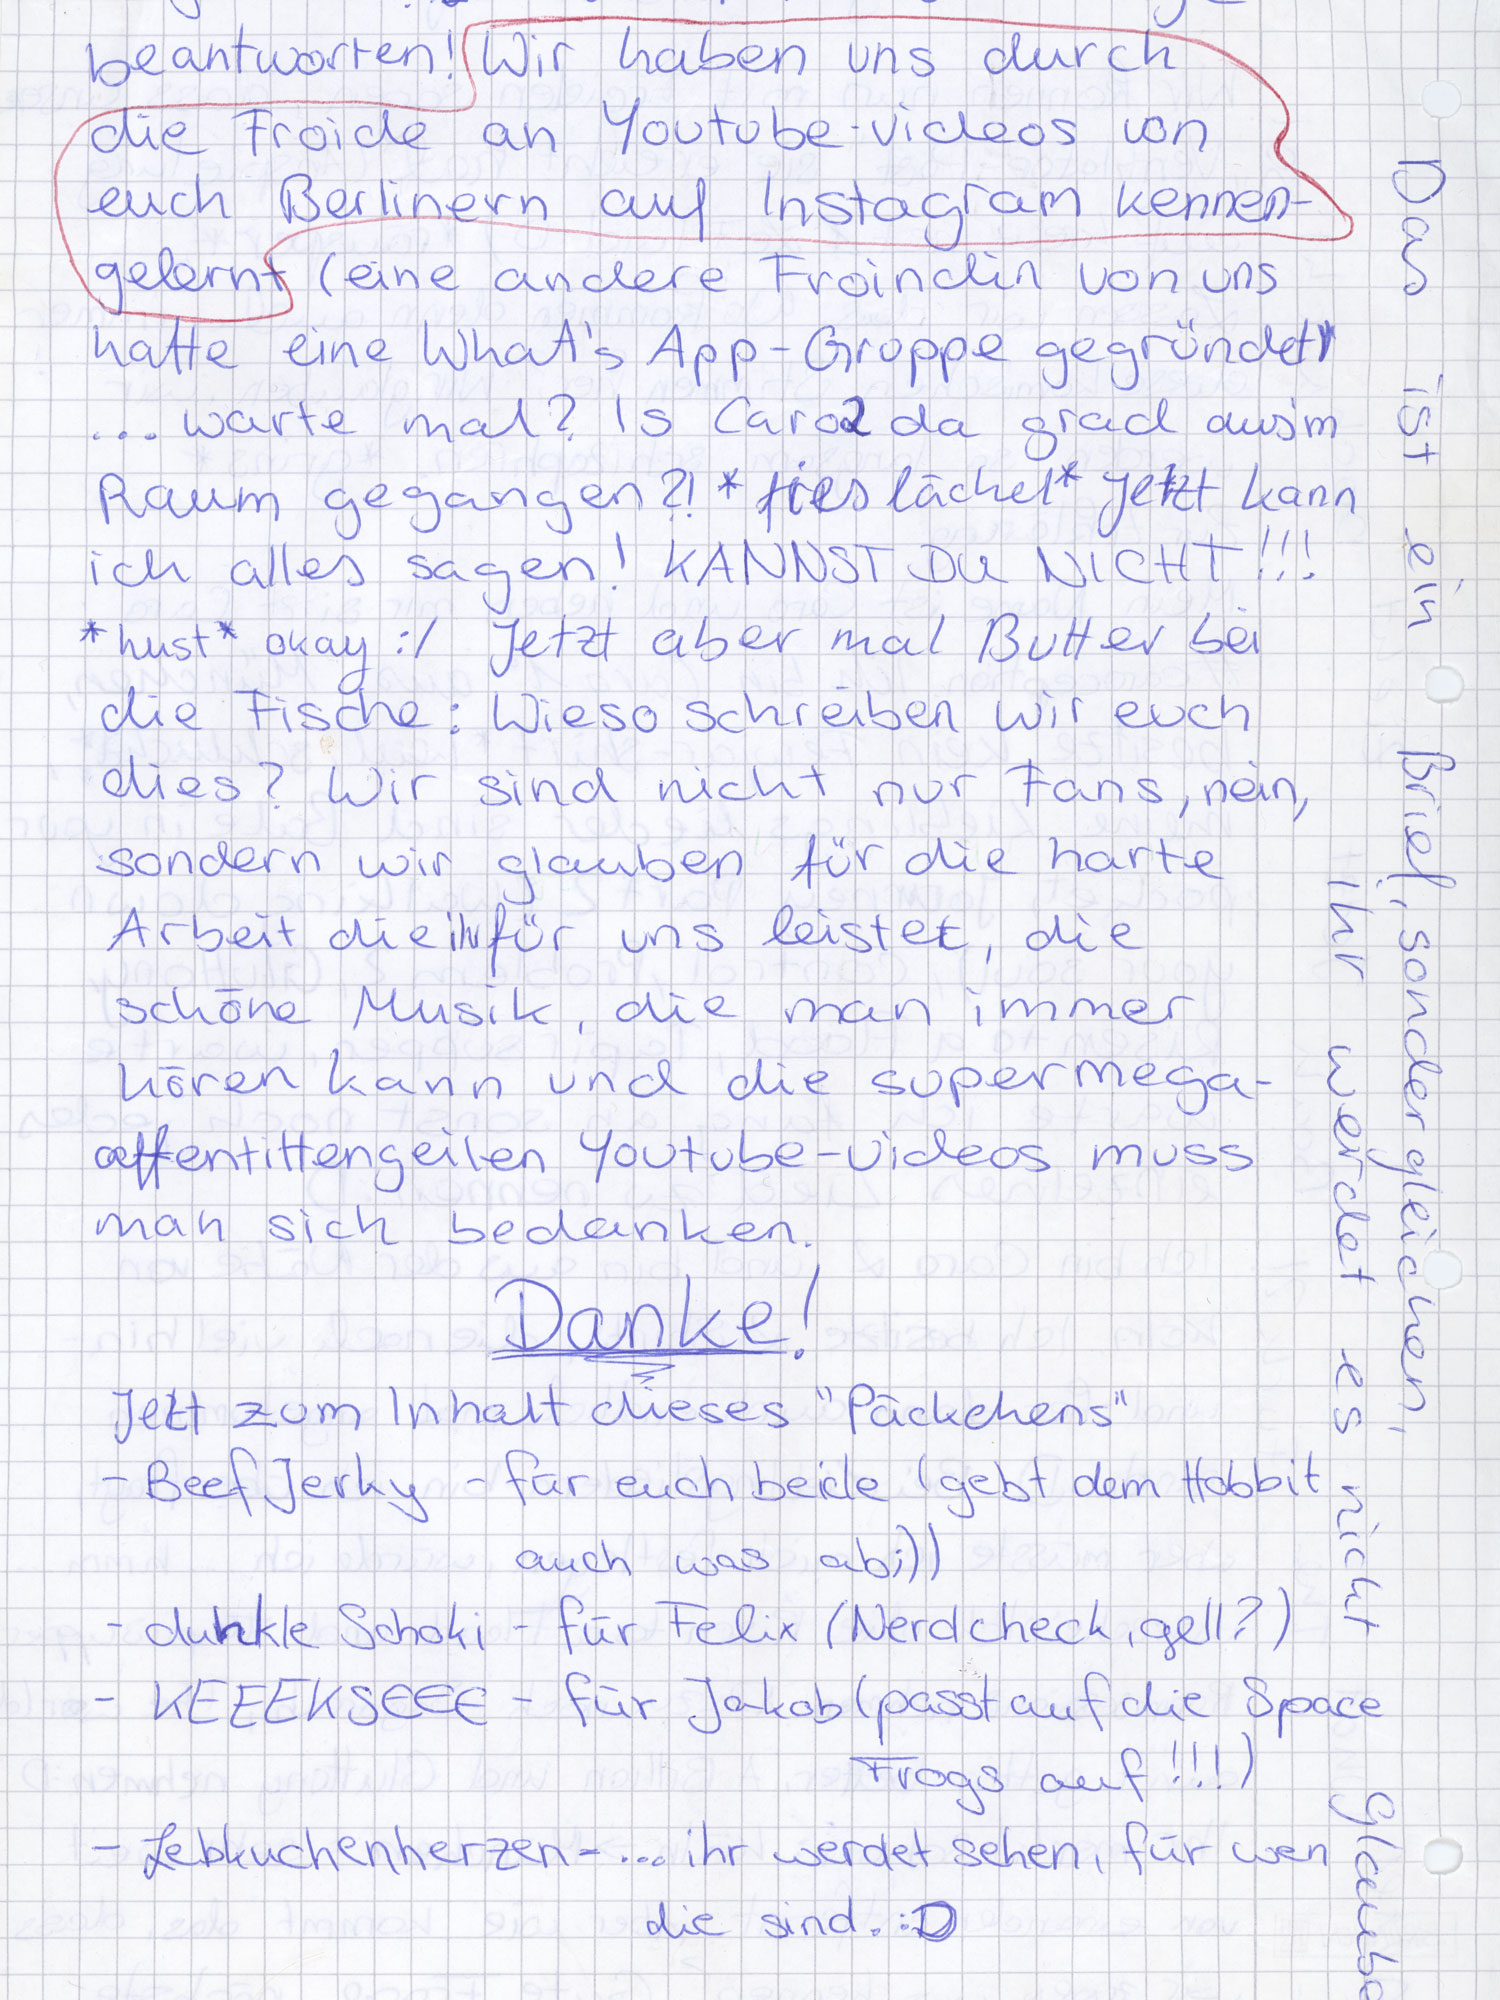 beantworten! Wir haben uns durch
die Froide an Youtube-videos von
euch Berlinern auf Instagram kennen-
gelernt (eine andere Froindin von uns
hatte eine What's App-Gruppe gegründet)
... warte mal? Is Caro2 da grad aus'm
Raum gegangen?! *fies lächel* Jetzt kann
ich alles sagen! KANNST DU NICHT!!!
*hust* okay :/ Jetzt aber mal Butter bei
die Fische: Wieso schreiben wir euch
dies? Wir sind nicht nur Fans, nein,
sondern wir glauben für die harte
Arbeit die ihr für uns leistet, die
schöne Musik, die man immer
hören kann und die supermega-
affentittengeilen Youtube-videos muss
man sich bedanken.
Danke!
Jetzt zum Inhalt dieses "Päckchens"
- Beef Jerky - für euch beide (gebt dem Hobbit
auch was ab;))
- dunkle Schoki - für Felix (Nerdcheck, gell?)
- KEEEKSEEE - für Jakob (passt auf die Space
Frogs auf!!!)
- Lebkuchenherzen - ... ihr werdet sehen, für wen
die sind. :D
Das ist ein Brief, sondergleichen,
ihr werdet es nicht glaube